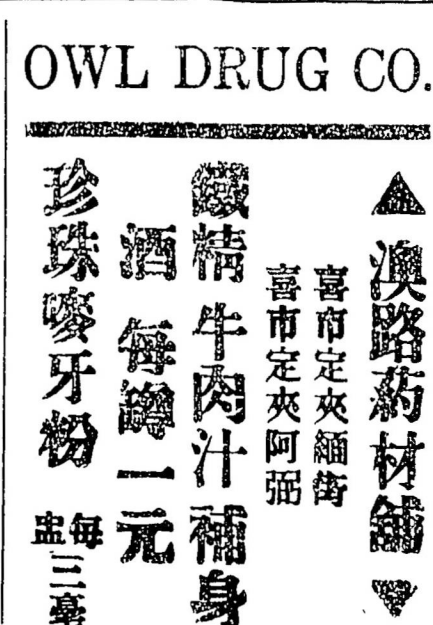 OWL DRUG CO.
▲澳路葯材舖▼
喜市定夾緬街
喜市定夾阿弼
鐵精牛肉汁補身
酒每罇一元
珍珠嘜牙粉
每盅三毫